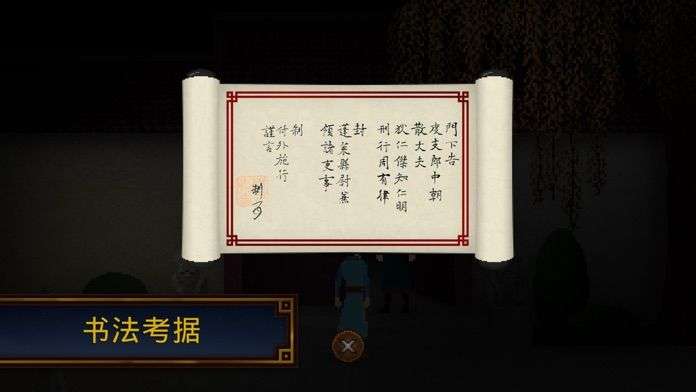 門下告
度支郎中朝
散大夫
狄仁傑知仁明
刑行周有律
封
蓬萊縣尉兼
領諸吏事
制
付外施行
謹言
制可
书法考据